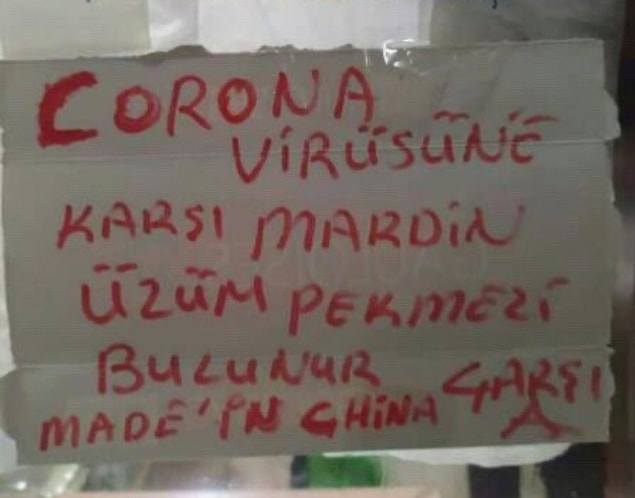 CORONA
VİRÜSÜNE
KARŞI MARDİN
ÜZÜM PEKMEZİ
BULUNUR ÇARŞI
MADE'İN CHİNA A